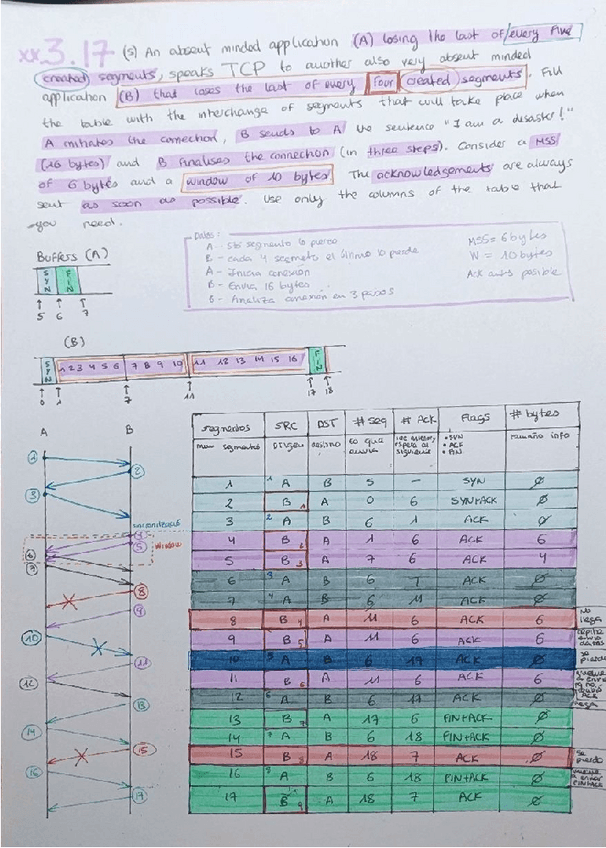 xx3.17 (5) An absent minded application (A) losing the last of every five
created segments, speaks TCP to another also very absent minded
application (B) that loses the last of every four created segments. Fill
the table with the interchange of segments that will take place when
A initiates the connection, B sends to A the sentence "I am a disaster!"
(16 bytes) and B finalises the connection (in three steps). Consider a MSS
of 6 bytes and a window of 10 bytes. The acknowledgements are always
sent as soon as possible. Use only the columns of the table that
you need.
Datos:
A - 5to segmento lo pierde
B - cada 4 segmento el último lo pierde
A - Inicia conexión
B - Envia 16 bytes
B - finaliza conexion en 3 pasos
MSS = 6 bytes
W = 10 bytes
Ack antes posible
Buffers (A)
SYN FIN
5 6 7
(B)
SYN 1 2 3 4 5 6 7 8 9 10 11 12 13 14 15 16 FIN
0 1 7 11 17 18
A B
1
2
3
window
6
7
8
10
11
12
13
14
15
16
17
segmentos SRC DST # seq # Ack Flags # bytes
num segmento origen destino lo que • SYN • ACK • FIN tamaño info
1 1 A B 5 - SYN ∅
2 B 1 A 0 6 SYN+ACK ∅
3 2 A B 6 1 ACK ∅
4 B 2 A 1 6 ACK 6
5 B 3 A 7 6 ACK 4
6 3 A B 6 7 ACK ∅
7 4 A B 6 11 ACK ∅
8 B 4 A 11 6 ACK 6 no llega
9 B 5 A 11 6 ACK 6
10 5 A B 6 17 ACK ∅ se pierde
11 B 6 A 11 6 ACK 6
12 6 A B 6 17 ACK ∅
13 B 7 A 17 6 FIN+ACK ∅
14 7 A B 6 18 FIN+ACK ∅
15 B 8 A 18 7 ACK ∅ se pierde
16 8 A B 6 18 FIN+ACK ∅
17 B 9 A 18 7 ACK ∅